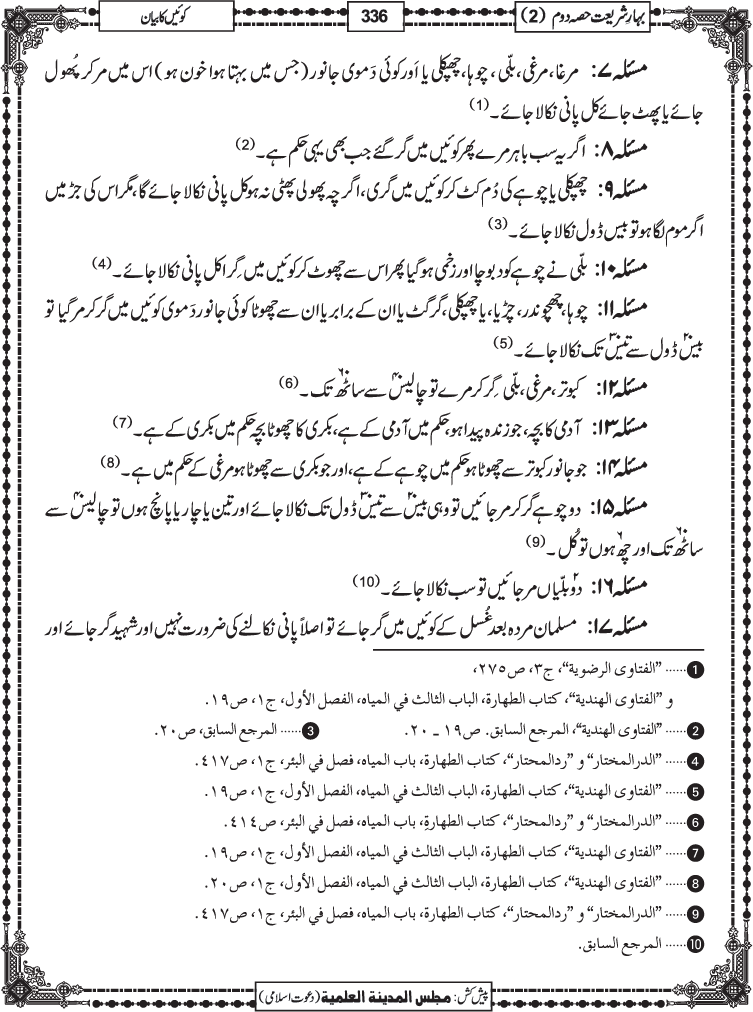 بہار شریعت حصہ دوم (2)
336
کوئیں کا بیان
مسئلہ ۷: مرغا، مرغی، بلّی، چوہا، چھپکلی یا اَور کوئی دَموی جانور (جس میں بہتا ہوا خون ہو) اس میں مر کر پُھول
جائے یا پھٹ جائے کُل پانی نکالا جائے۔(1)
مسئلہ ۸: اگر یہ سب باہر مرے پھر کوئیں میں گر گئے جب بھی یہی حکم ہے۔(2)
مسئلہ ۹: چھپکلی یا چوہے کی دُم کٹ کر کوئیں میں گری، اگرچہ پھولی پھٹی نہ ہو کل پانی نکالا جائے گا، مگر اس کی جڑ میں
اگر موم لگا ہو تو بیس ڈول نکالا جائے۔(3)
مسئلہ ۱۰: بلّی نے چوہے کو دبوچا اور زخمی ہو گیا پھر اس سے چھوٹ کر کوئیں میں گِرا کل پانی نکالا جائے۔(4)
مسئلہ ۱۱: چوہا، چھچھوندر، چڑیا، یا چھپکلی، گرگٹ یا ان کے برابر یا ان سے چھوٹا کوئی جانور دَموی کوئیں میں گر کر مر گیا تو
بیس۲۰ ڈول سے تیس۳۰ تک نکالا جائے۔(5)
مسئلہ ۱۲: کبوتر، مرغی، بلّی گِر کر مرے تو چالیس۴۰ سے ساٹھ۶۰ تک۔(6)
مسئلہ ۱۳: آدمی کا بچہ، جو زندہ پیدا ہو، حکم میں آدمی کے ہے، بکری کا چھوٹا بچہ حکم میں بکری کے ہے۔(7)
مسئلہ ۱۴: جو جانور کبوتر سے چھوٹا ہو حکم میں چوہے کے ہے، اور جو بکری سے چھوٹا ہو مرغی کے حکم میں ہے۔(8)
مسئلہ ۱۵: دو چوہے گر کر مر جائیں تو وہی بیس۲۰ سے تیس۳۰ ڈول تک نکالا جائے اور تین یا چار یا پانچ ہوں تو چالیس۴۰ سے
ساٹھ۶۰ تک اور چھ۶ ہوں تو کُل۔(9)
مسئلہ ۱۶: دو۲ بلّیاں مر جائیں تو سب نکالا جائے۔(10)
مسئلہ ۱۷: مسلمان مردہ بعد غُسل کے کوئیں میں گر جائے تو اصلاً پانی نکالنے کی ضرورت نہیں اور شہید گر جائے اور
1...... ”الفتاوی الرضویة“، ج۳، ص۲۷۵،
و ”الفتاوی الھندیة“، کتاب الطھارة، الباب الثالث في المیاہ، الفصل الأول، ج۱، ص۱۹.
2...... ”الفتاوی الھندیة“، المرجع السابق. ص۱۹ ـ ۲۰.
3...... المرجع السابق، ص۲۰.
4...... ”الدرالمختار“ و ”ردالمحتار“، کتاب الطھارة، باب المیاہ، فصل في البئر، ج۱، ص۴۱۷.
5...... ”الفتاوی الھندیة“، کتاب الطھارة، الباب الثالث في المیاہ، الفصل الأول، ج۱، ص۱۹.
6...... ”الدرالمختار“ و ”ردالمحتار“، کتاب الطھارةِ، باب المیاہ، فصل في البئر، ص۴۱۴.
7...... ”الفتاوی الھندیة“، کتاب الطھارة، الباب الثالث في المیاہ، الفصل الأول، ج۱، ص۱۹.
8...... ”الفتاوی الھندیة“، کتاب الطھارة، الباب الثالث في المیاہ، الفصل الأول، ج۱، ص۲۰.
9...... ”الدرالمختار“ و ”ردالمحتار“، کتاب الطھارة، باب المیاہ، فصل في البئر، ج۱، ص۴۱۷.
10...... المرجع السابق.
پیش کش: مجلس المدینة العلمیة (دعوتِ اسلامی)